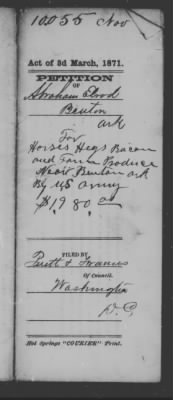 10055 Nov
Act of 3d March, 1871.
PETITION
OF
Abraham Elrod
Benton
ark
For
Horses Hogs Bacon
and Farm Produce
Near Benton ark
By US army
$1980 00
FILED BY
& Francis
Of Counsel.
Washington
D. C,
Hot Springs "COURIER" Print.